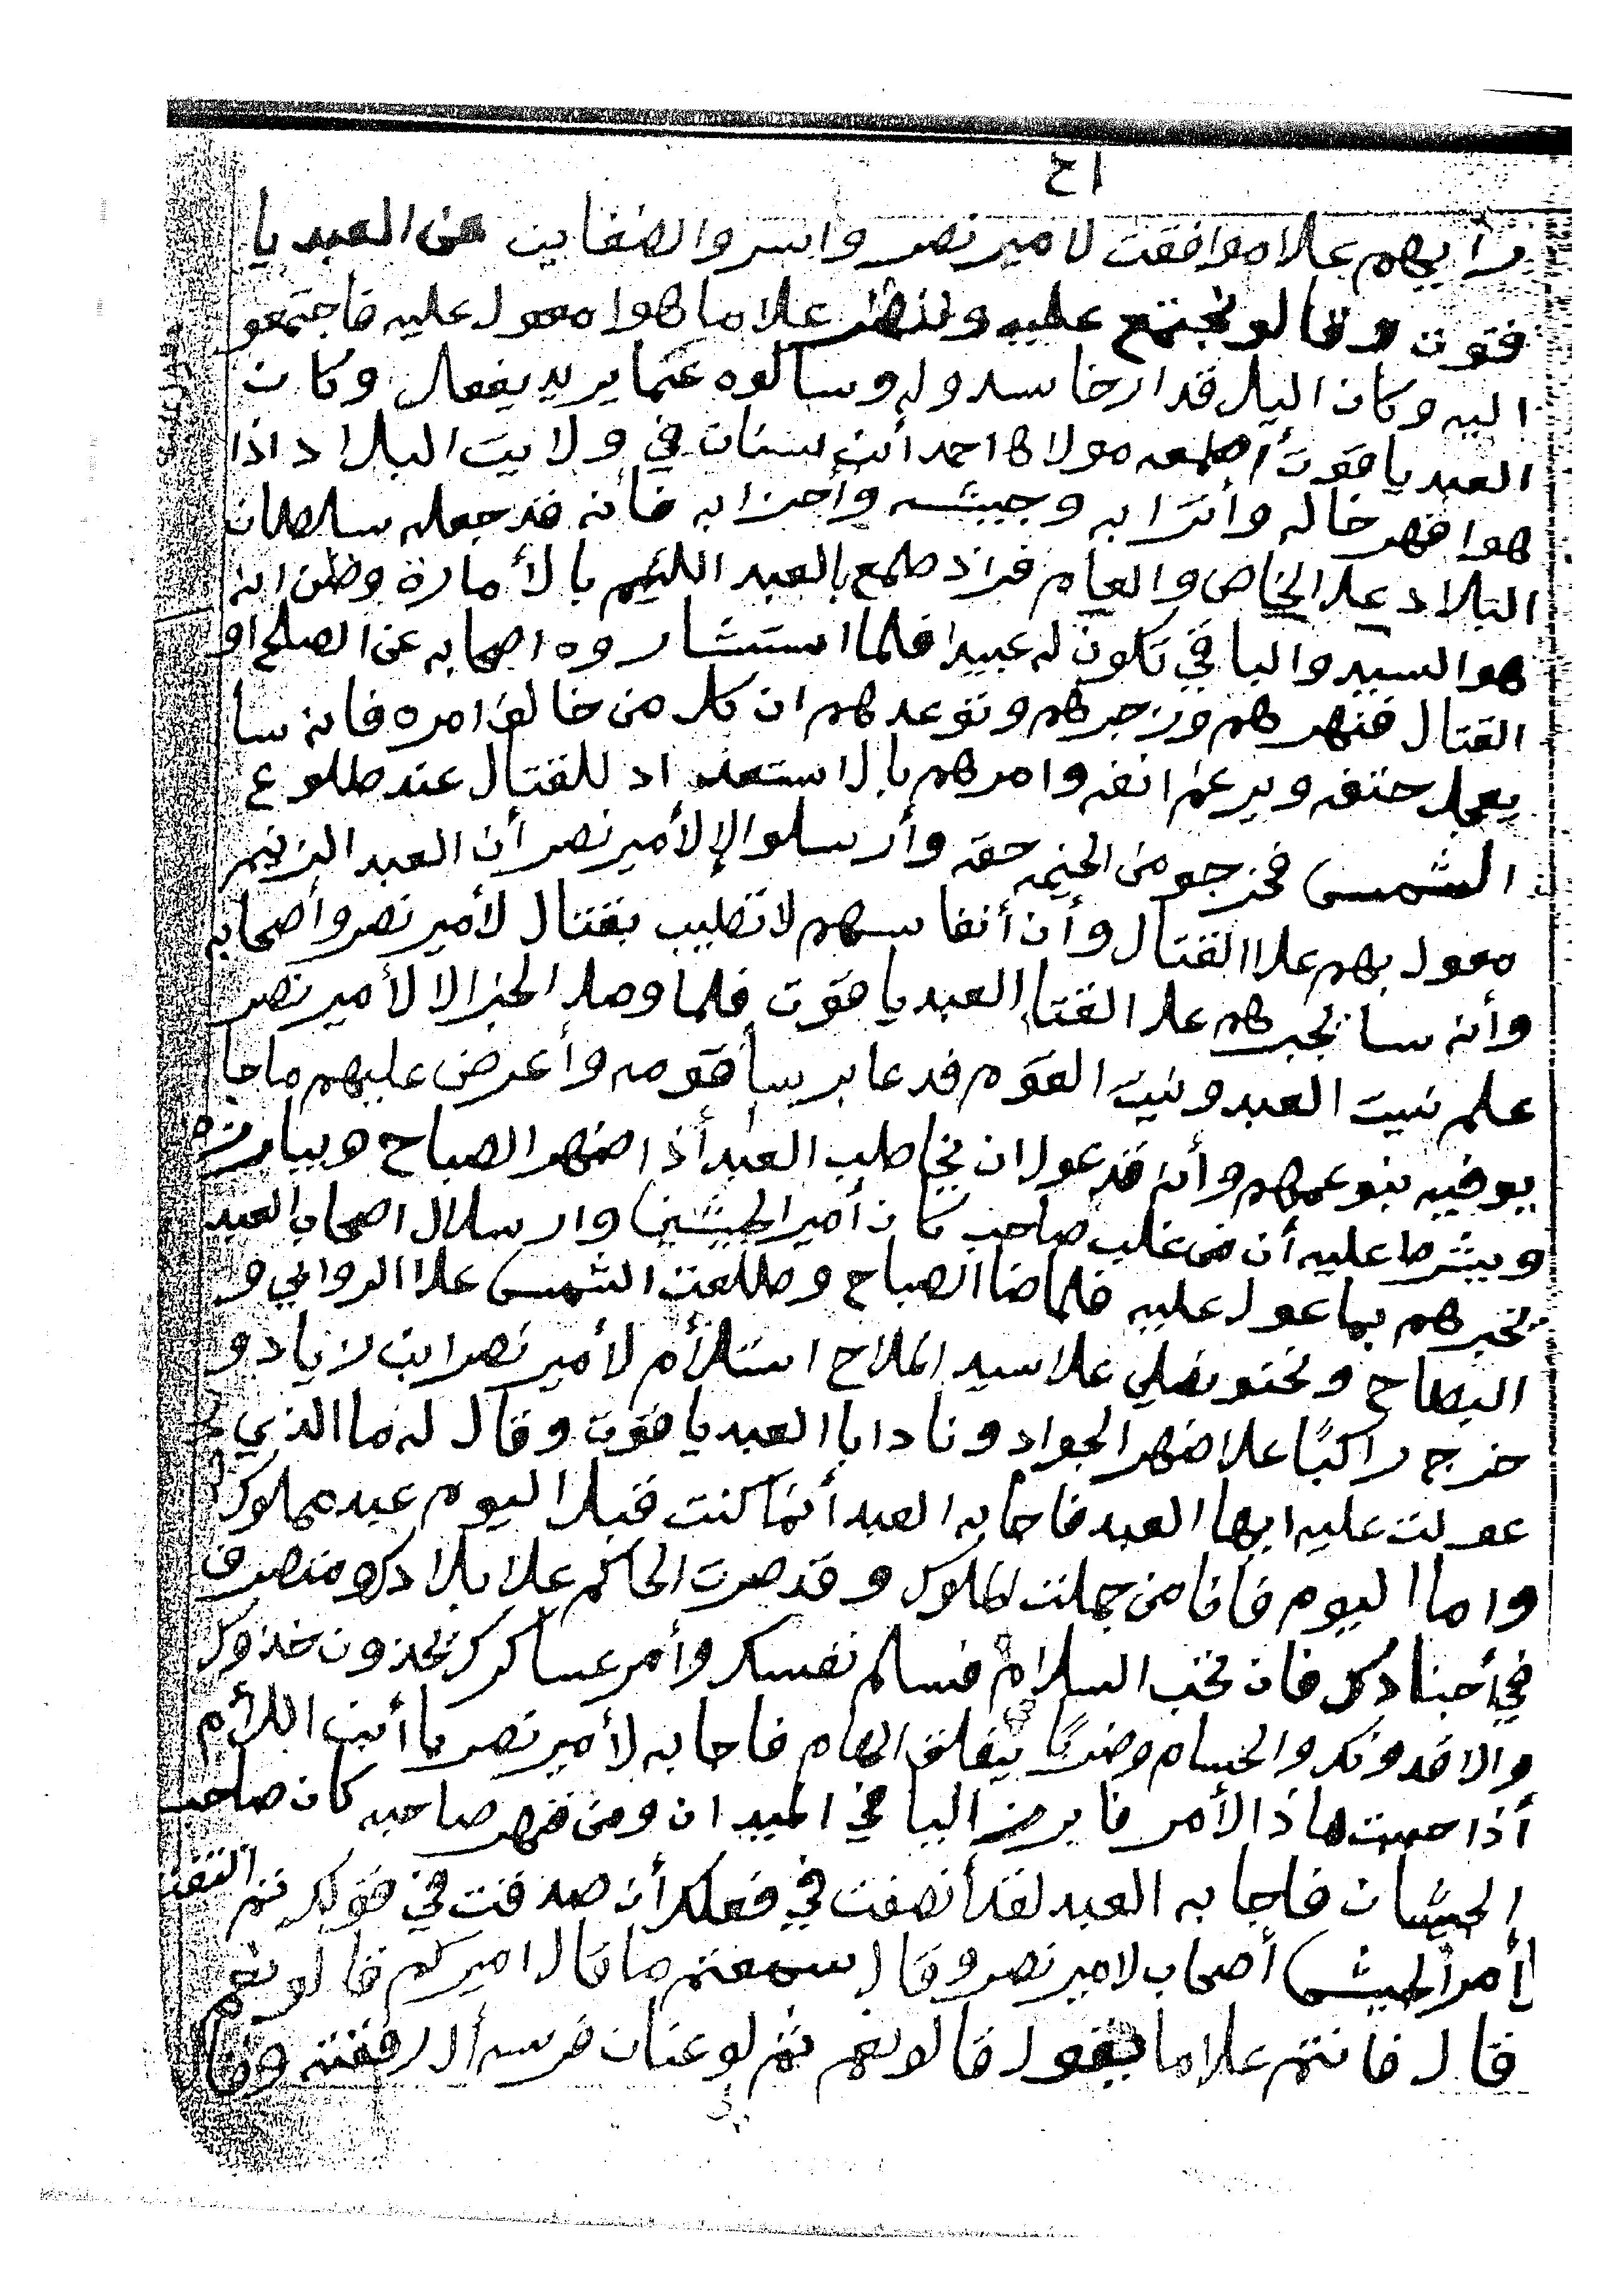 اح
رأيهم علا موافقت لامير نصر واسرو الضغاين عن العبد يا
قوت وقالو نجتمع عليه وننضر علاما هوا معول عليه فاجتمعو
اليه وكان اليل قد ارخا سدوله وسالوه عما يريد يفعال وكان
العبد ياقوت اطمعه مولاها احمد أبن سنان في ولايت البلاد اذا
هوا قهر خاله وأترابه وجيشه وأحزابه فأنه قد جعله سلطان
البلاد علا الخاص والعام فزاد طمع بالعبد اللئيم بالأمارة وظن انه
هوا السيد والباقي تكون له عبيدا فلما استشاروه اصحابه عن الصلح او
القتال فنهرهم وزجرهم وتوعدهم ان كل من خالف امره فانه سا
يعجل حتفه ويرغم انفه وامرهم بال استعداد للقتال عند طلوع
الشمس فخرجو من الخيمه حقه وأرسلوا الإ لأمير نصر أن العبد الزنيم
معول بهم علا القتال وأن أنفاسهم لا تطيب بقتال لأمير نصر وأصحابه
وأنه سا يجبرهم علا القتا العبد ياقوت فلما وصل الخبر الا لأمير نصر
علم نيت العبد ونيت القوم فدعا بريسا قومه وأعرض عليهم ماجا
يوفيه بنو عمهم وأنه قد عول ان يخاطب العبد أذا ضهر الصباح ويبارزه
ويشرط عليه أن من غلب صاحبه كان أمير الجيشين وارسلال اصحاب العبد
يخبرهم بما عول عليه فلما ضا الصباح وطلعت الشمس علا الروابي و
البطاح ونحنو نصلي علا سيد الملاح استلأم لأمير نصر ابن زياد و
خرج راكبًا علا ضهر الجواد ونادا بالعبد ياقوت وقال له ما الذي
عولت عليه ايها العبد فاجابه العبد أنما كنت قبل اليوم عبد مملوك
واما اليوم فانا من جملت الملوك وقد صرت الحاكم علا بلادك ومتصرف
في أجنادك فان تحب السلام فسالم نفسك وأمر عساكرك يحذون حذوك
والا فدونك والحسام وضربًا يفلق الهام فاجابه لأمير نصر يا أبن اللأم
أذا حبيت هاذا الأمر فا برز اليا في الميدان ومن قهر صاحبه كان صاحب
الجيشان فاجابه العبد لقد أنصفت في فعلك أن صدقت في قولك ثم التفت
أمر الجيش أصحاب لامير نصر وقال سمعتم ما قال اميركم قالو نعم
قال فانتم علاما يقول قالو نعم ثم لو عنان فرسه أل رفقته وقال